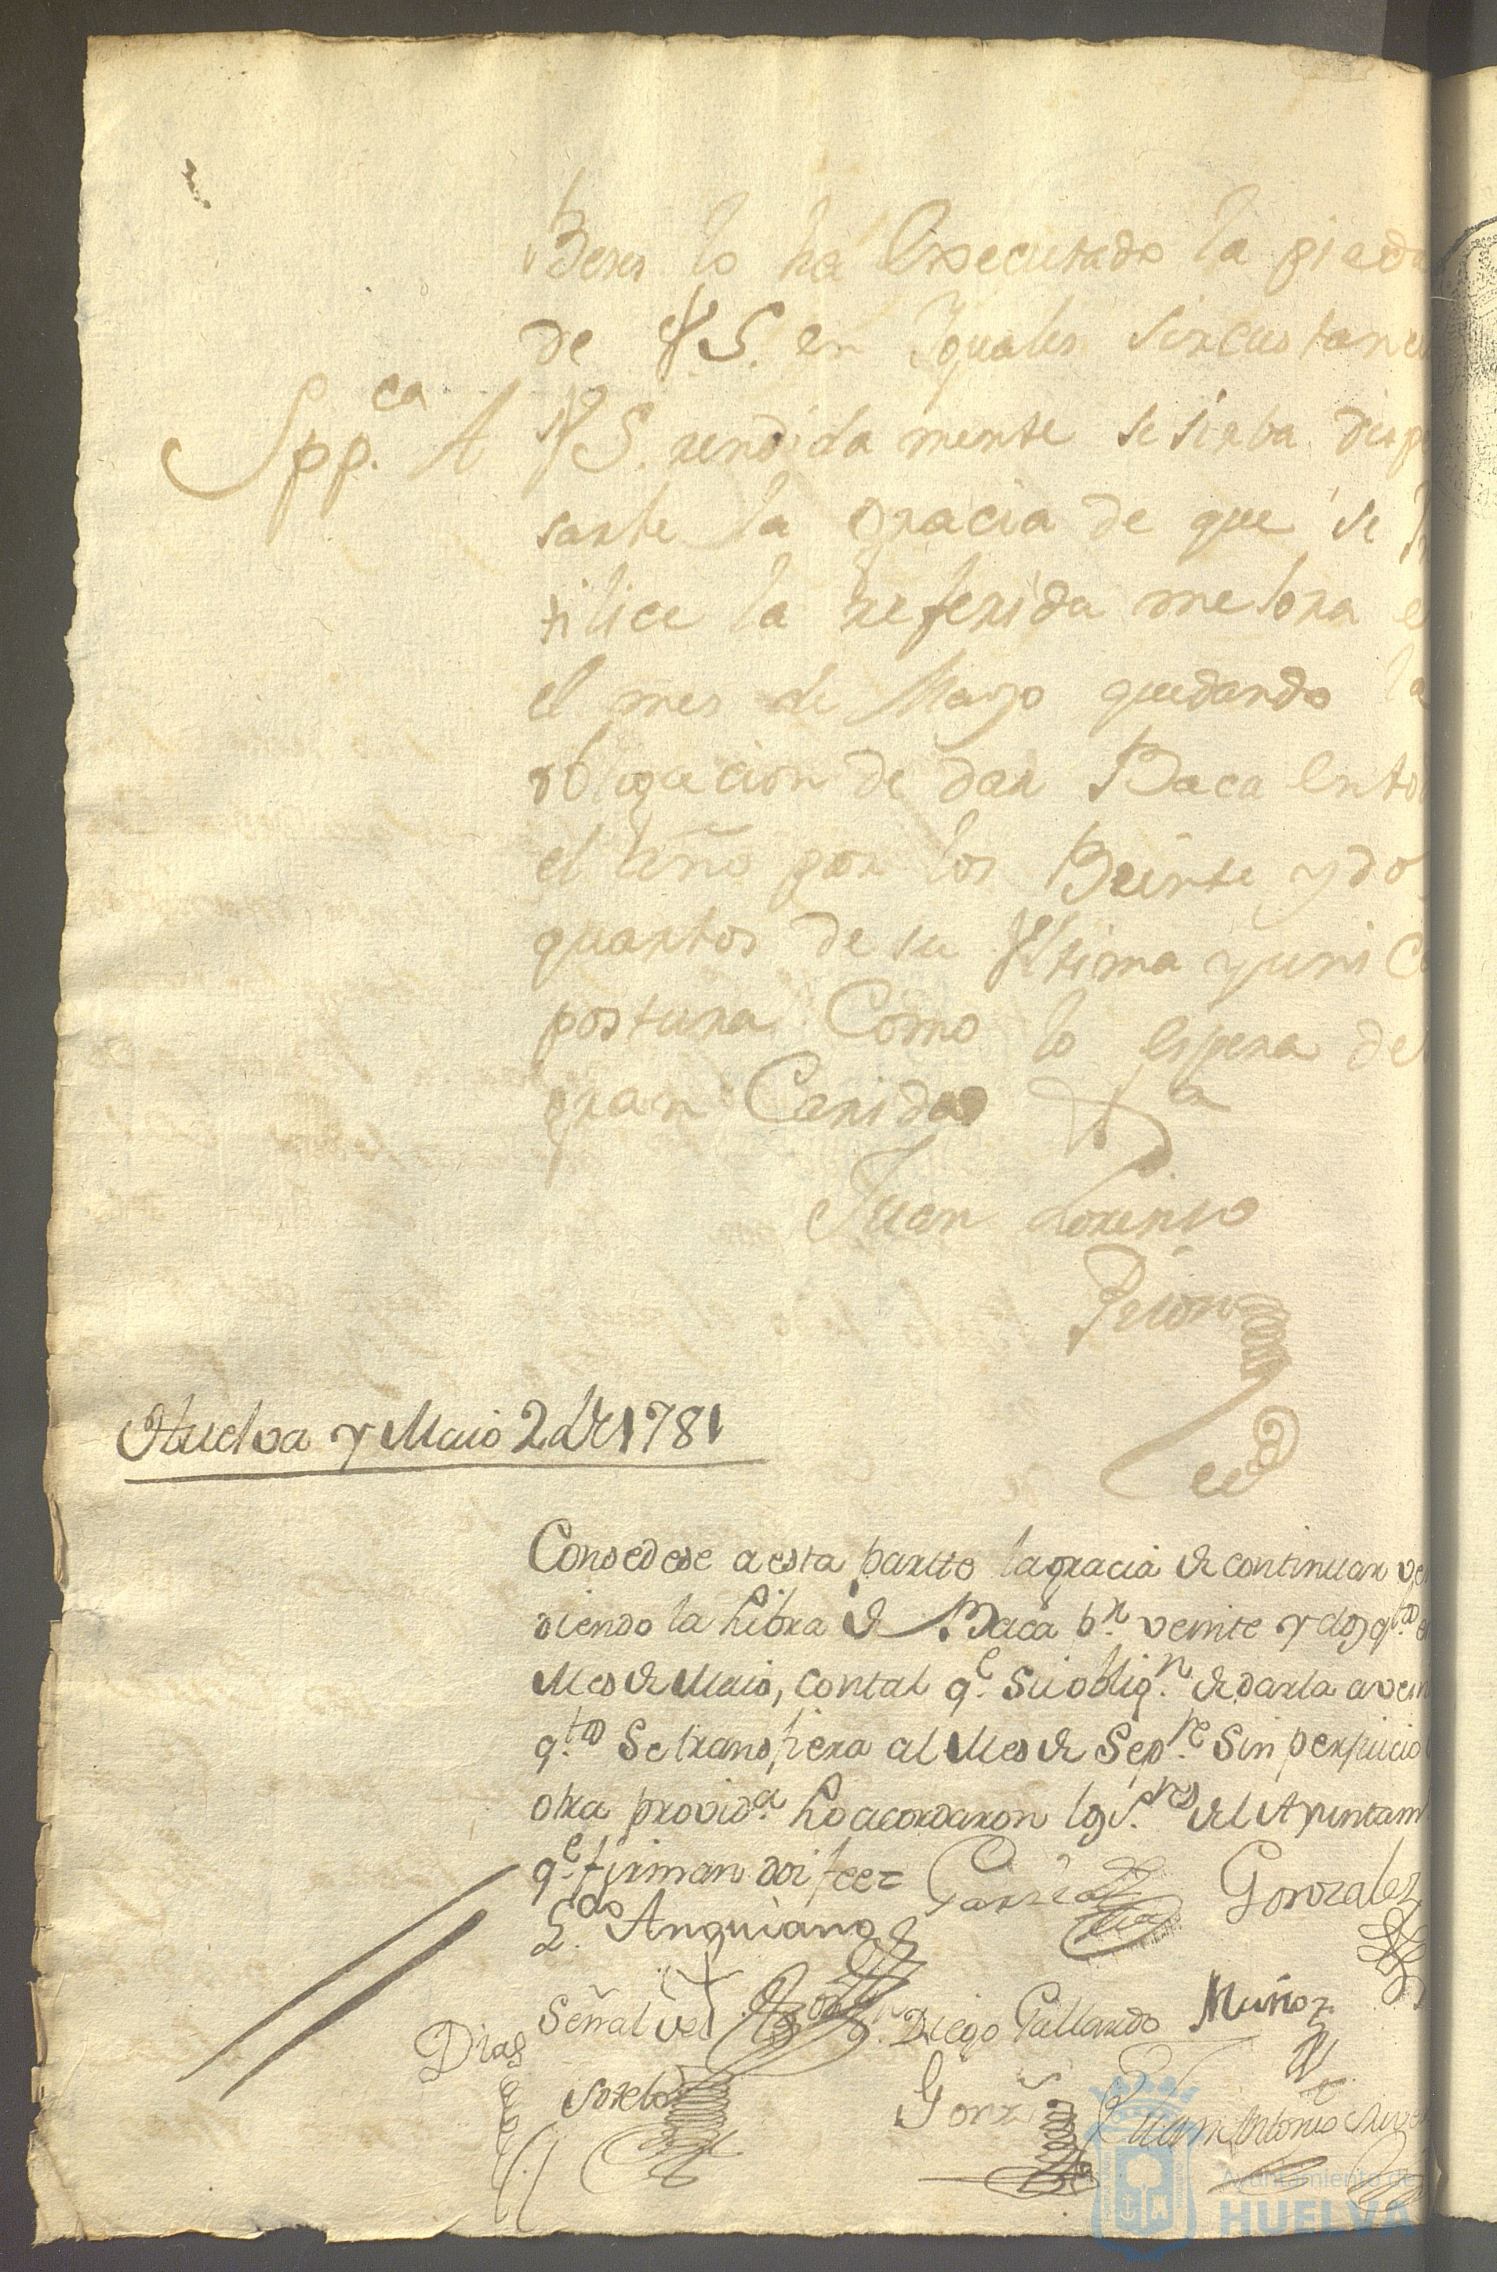 Beses lo ha Executado la pieda
de VS. en Iguales sircustanci
Spp.ca A VS. rendida mente se sirba disp
sarle la Gracia de que se
tilice la referida meJora e
el mes de Mayo quedando la
obligacion de dar Baca En to
el Año por los Beinte y do
quartos de su Ultima y uni C
postura Como lo espera de
gran Caridad
Juan Lorenso
Prion
Huelva y Maio 2 de 1781
Consedese a esta partte la gracia de continuar ve
diendo la Libra de Baca p.r veinte y dos q.tos e
Mes de Maio, con tal q.e su oblig.n de darla a vein
q.tos Se transfiera al Mes de Sep.re Sin perjuicio
otra provid.a Lo acordaron los S.res del Ayuntam
q.e firman doi fee= Garzia Gonzalez
L.do Anguiano
Señal del Diego Gallardo Muñoz
Dias
Sotelo Gonz Juan Antonio
Ayuntamiento de
HUELVA